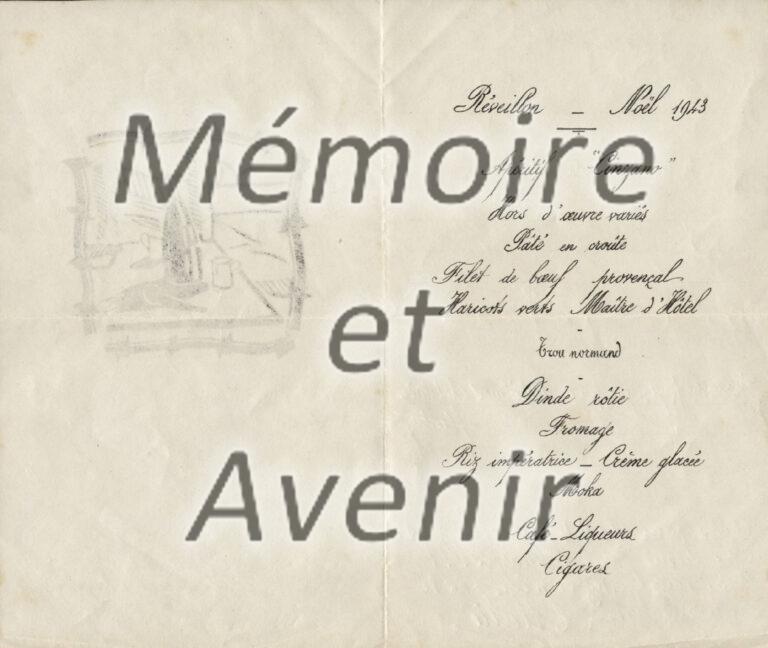 Mémoire
et
Avenir
Réveillon - Noël 1943
Apéritif "Cinzano"
Hors d'œuvre variés
Pâté en croûte
Filet de bœuf provençal
Haricots verts Maître d'Hôtel
-
Trou normand
-
Dinde rôtie
Fromage
Riz impératrice - Crème glacée
Moka
Café - Liqueurs
Cigares